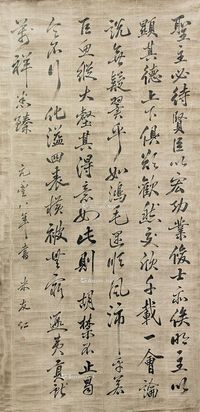 聖主必待賢臣以宏功業俊士亦俟明主以
顯其德上下俱欲歡然交欣千載一會論
說無疑翼乎如鴻毛遇順風沛乎若
巨魚縱大壑其得意如此則胡禁不止曷
令不行化溢四表橫被無窮遐夷貢獻
萬祥臻 元豐八年書 米友仁